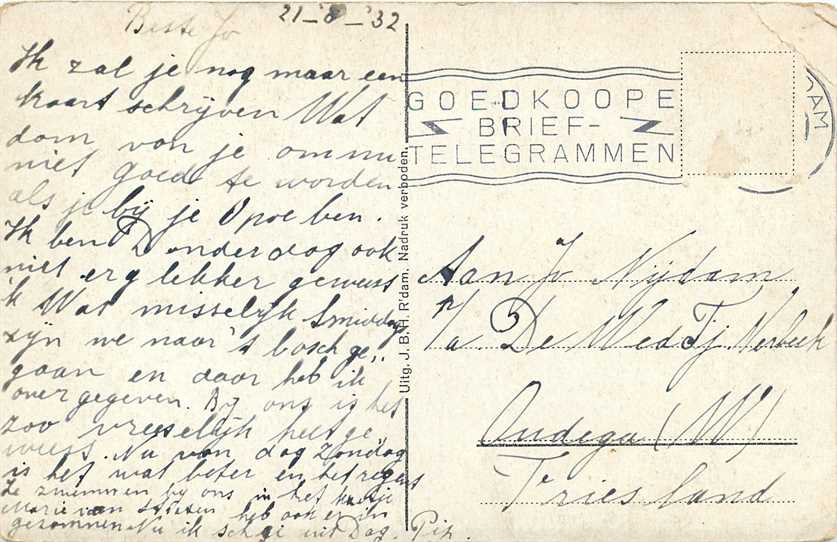 Beste Jo 21-8-'32
Ik zal je nog maar een
kaart schrijven Wat
dom van je om nu
niet goed te worden
als je bij je Opoe ben.
Ik ben Donderdag ook
niet erg lekker geweest
'k Was misselijk Smiddags
zijn we naar 't bosch ge„
gaan en daar heb ik
overgegeven. Bij ons is het
zoo vreeselijk heet ge„
weest. Nu van dag Zondag
is het wat beter en het regent
Ze zwemmen bij ons in het
Marie van heb ook er in
gezwommen Nu ik schei uit Dag. Piet.
Uitg. J. B. H. R'dam. Nadruk verboden.
GOEDKOOPE
BRIEF-
TELEGRAMMEN
DAM
Aan Jo Nijdam
p/a De Wed Tj. Verbeek
Oudega (W)
Friesland